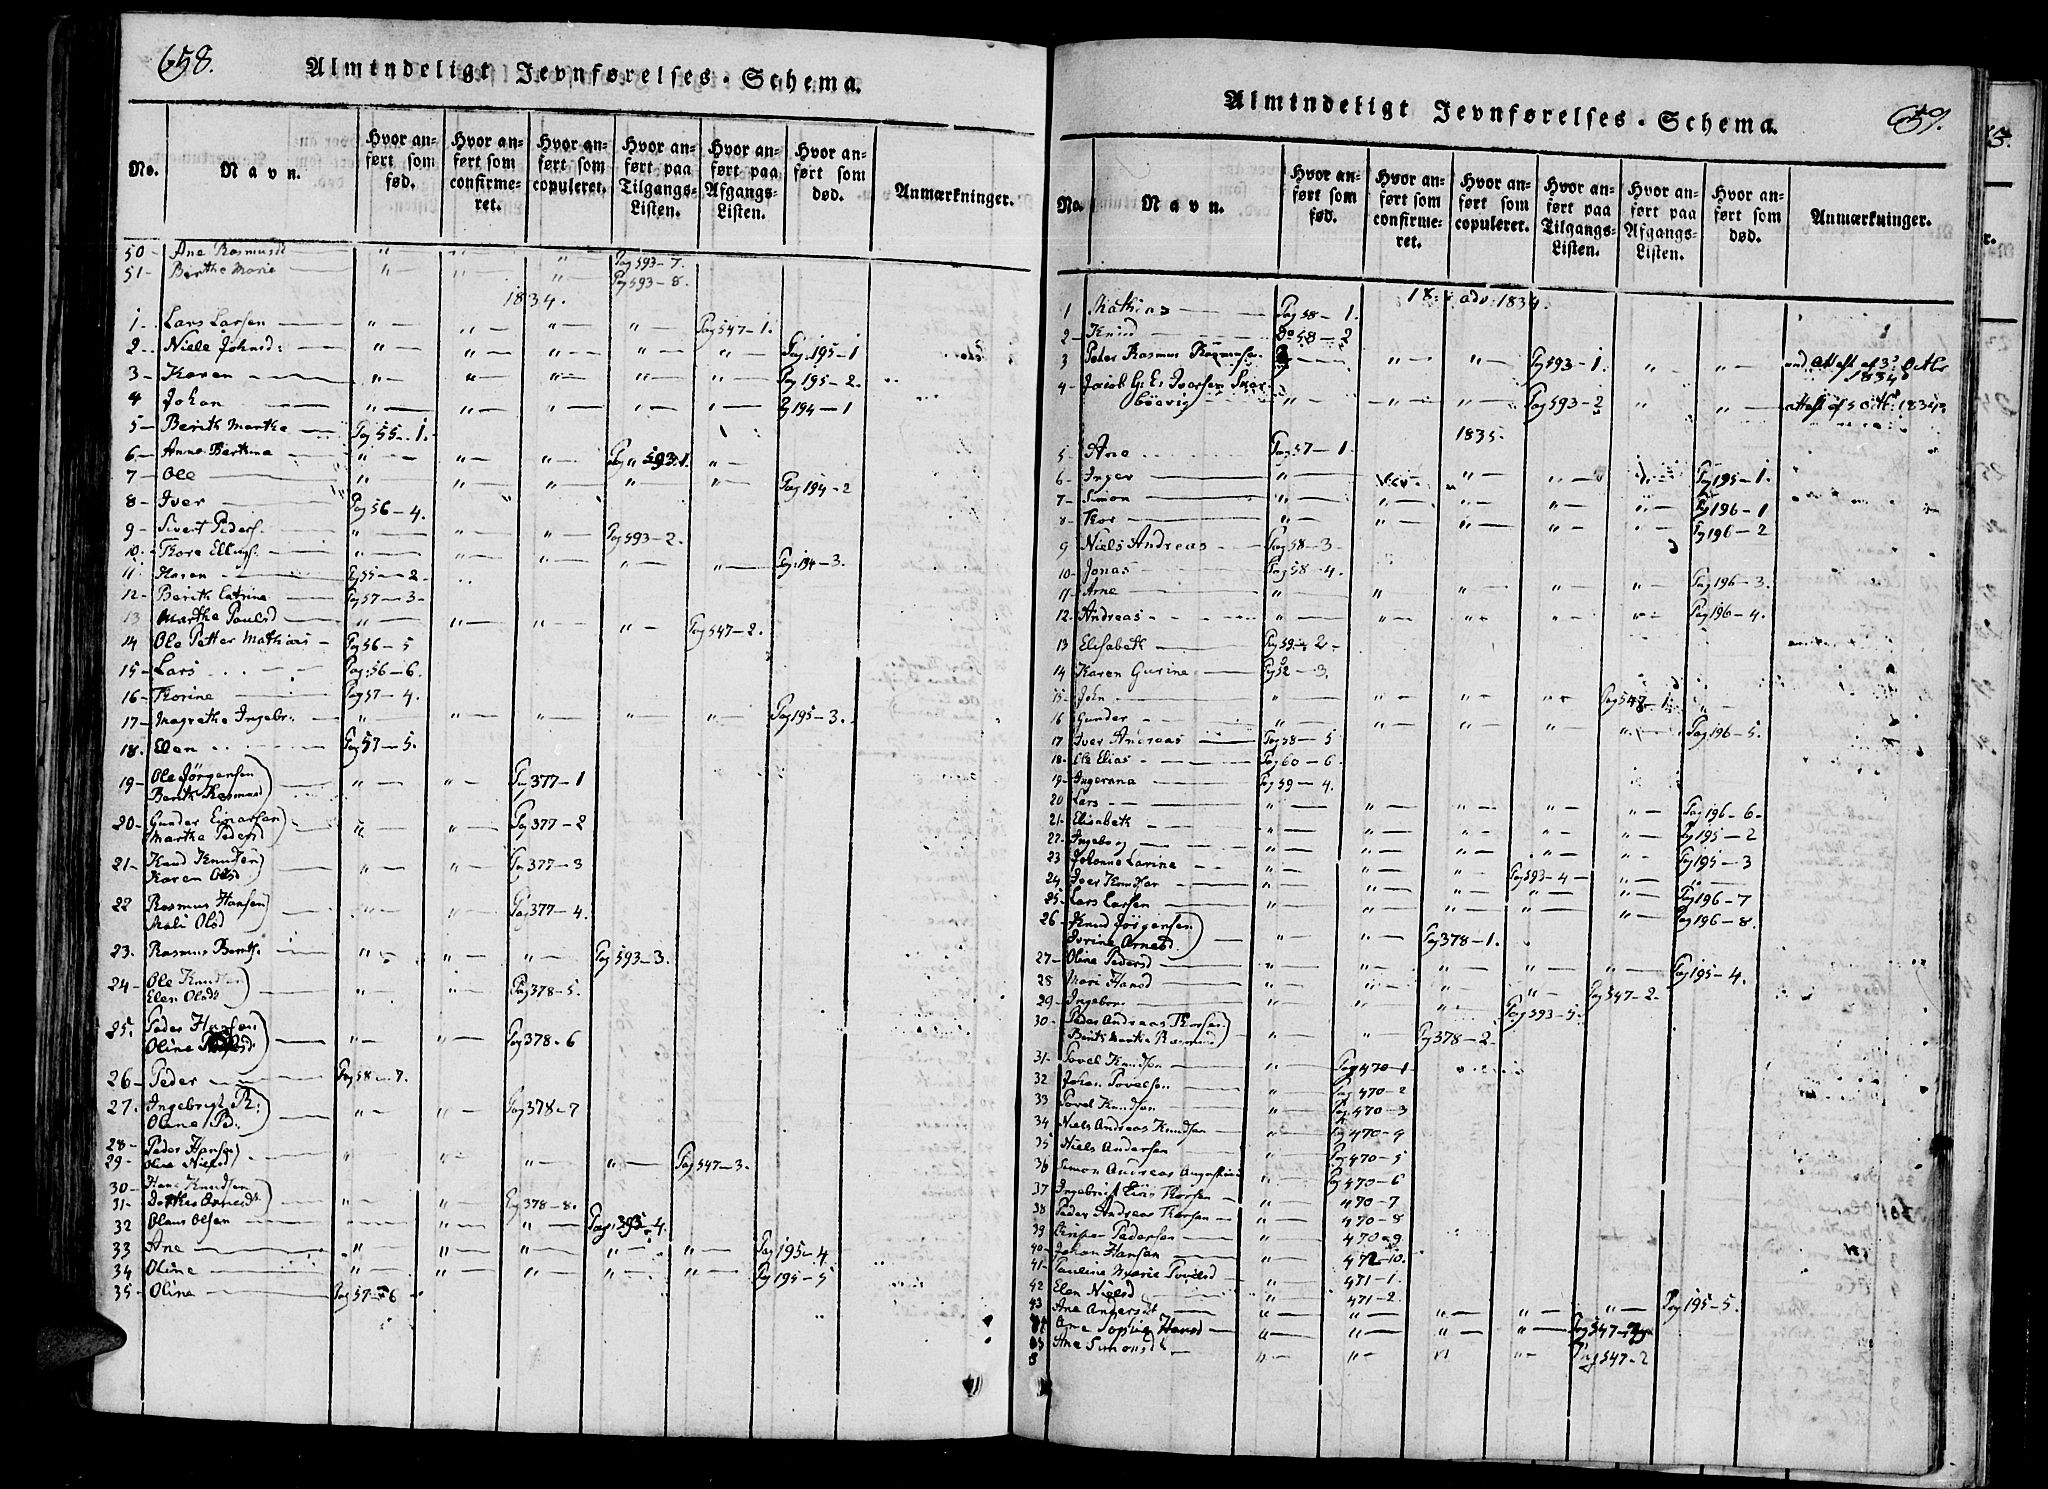 658.
Almindeligt Jevnførelses-Schema.
No. Navn. Hvor anført som fød. Hvor anført som confirmeret. Hvor anført som copuleret. Hvor anført paa Tilgangs-Listen. Hvor anført paa Afgangs-Listen. Hvor anført som død. Anmærkninger.
50 - Ane Rasmusd " " " Pag 593-7.
51 - Berthe Marie " " " Pag 593-8.
1834.
1 - Lars Larsen " " " " Pag 547-1.
2 - Niels Johnsd: " " " " " Pag. 195-1
3 - Karen " " " " " Pag 195-2.
4 Johan " " " " " Pg 194-1
5 - Berith Marthe Pag 55-1.
6 - Anne Berthine " " " Pag 593-1. "
7 - Ole " " " " " Pag 194-2
8 - Iver Pag 56-4.
9 - Sivert Peders. " " " Pag 593-2.
10 - Thore Ellings. " " " " " Pag: 194-3.
11 - Karen Pg 55-2
12 - Berith Catrine Pag 57-3
13 Marthe Paulsd " " " " Pag 547-2.
14 Ole Petter Mathias Pag 56-5
15 - Lars Pag: 56-6.
16 - Thorine Pag 57-4.
17 - Magrethe Ingebr: " " " " " Pag 195-3.
18. Elen Pag 57-5.
19 - Ole Jørgensen
Berith Rasmusd " " Pag 377-1
20 - Gunder Einarsen
Marthe Pedersd " " Pag 377-2
21 - Knud Knudsen
Karen Olsd " " Pag 377-3
22 Rasmus Hansen
Mali Olsd " " Pag 377-4.
23. Rasmus Benth. " " " Pag 593-3.
24 - Ole Knudsen
Elen Olsd " " Pag 378-5.
25. Peder Hansen
Oline " " Pag 378-6
26 - Peder Pag 58-7.
27. Ingebrigt R:
Oline Pd: " " Pag 378-7
28 - Peder Hansen
29 - Oline Nielsd " " " Pag 547-3.
30 - Hans Knudsen
31 - Dorthe Arnesd " " Pag 378-8.
32 Olaus Olsen " " Pag: 393-4.
33 Ane " " " " " Pag 195-4
34 Oline " " " " " Pg 195-5
35 - Oline Pag 57-6
659.
Almindeligt Jevnførelses-Schema.
No. Navn. Hvor anført som fød. Hvor anført som confirmeret. Hvor anført som copuleret. Hvor anført paa Tilgangs-Listen. Hvor anført paa Afgangs-Listen. Hvor anført som død. Anmærkninger.
1834.
1 Mathias Pag 58-1.
2 - Knud Do 58-2
3 Peder Rasmus Rasmusen " " Pag 593-1. " " Attest af 3. Octbr 1834
4 - Jacob G: E: Iversen " " " Pag 593-2 " " attest af 5 Octb: 1834
1835.
5 - Ane Pag 57-1
6 - Inger " " " " Pag 195-1.
7 - Simon " " " " " Pg 196-1
8 - Thor " " " " " Pg 196-2
9 Niels Andreas Pag 58-3
10 - Jonas Pag 58-4.
11 - Arne " " " " Pag 196-3.
12 - Andreas " " " " " Pag 196-4.
13 Elisabeth Pag 59-2
14 Karen Gurine Pg 52-3.
15 - John " " " " Pag 547-1. "
16 Gunder " " " " " Pag 196-5.
17 Iver Andreas Pag 58-5
18 - Ole Elias Pag 60-6.
19 - Ingerana Pag 59-4.
20 Lars " " " " " Pag 196-6
21 - Elisabeth " " " " " Pg 195-2
22 - Ingebog " " " " " Pg 195-3
23 Johanne Larine " " " Pag 593-4
24 Iver Knudsen " " " " " Pag 196-7
25 - Lars Larsen " " " " " Pag 196-8.
26 - Knud Jørgensen
Jorine Arnesd " " Pag 378-1.
27 - Oline Pedersd " " " " " Pag 195-4.
28 Mari Hansd " " " " Pag 547-2
29 - Ingebor " " " Pag 593-5
30 - Peder Andreas Thorsen
Berith Marthe Rasmusd " " Pag 378-2
31 - Povel Knudsen " Pag 470-1
32 Johan Povelsen " Pag 470-2
33 Povel Knudsen " Pag 470-3
34 Niels Andreas Knudsen " Pg 470-4
35 Niels Andersen " Pag 470-5
36 Simon Andreas " Pag 470-6
37 Ingebrigt Elias Thorsen " " 470-7
38 Peder Andreas Thorsen " " 470-8
39 Pedersen " " 470-9
40 - Johan Hansen " " 472-10.
41 - Pauline Marie Povelsd " " 471-1.
42 Elen Nielsd " " 471-2.
43 Ane Andersdt " " " " " Pag 195-5.
Ane Sophia Hansd " " " " Pag 547-
Ane Simonsd " " " " Pag 547-2